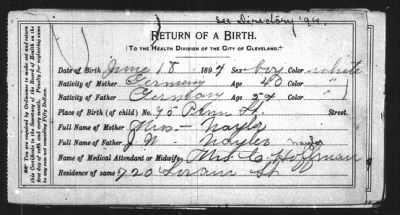 See Directory '94.
RETURN OF A BIRTH.
(TO THE HEALTH DIVISION OF THE CITY OF CLEVELAND.)
Date of Birth June 18 1894 Sex boy Color white
Nativity of Mother Germany Age 40 Color "
Nativity of Father German Age 54 Color " )
Place of Birth (of child) No. 95 Penn St Street.
Full Name of Mother Mrs — Nayla
Full Name of Father J. W. Nayler
Name of Medical Attendant or Midwife Mrs. C. Hoffman
Residence of same 720 St
NB You are required by Ordinance to make out and return
this Certificate to the Secretary of the Board of Health on the
first day of each and every month. Penalty for neglecting same
in any sum not exceeding Fifty Dollars.